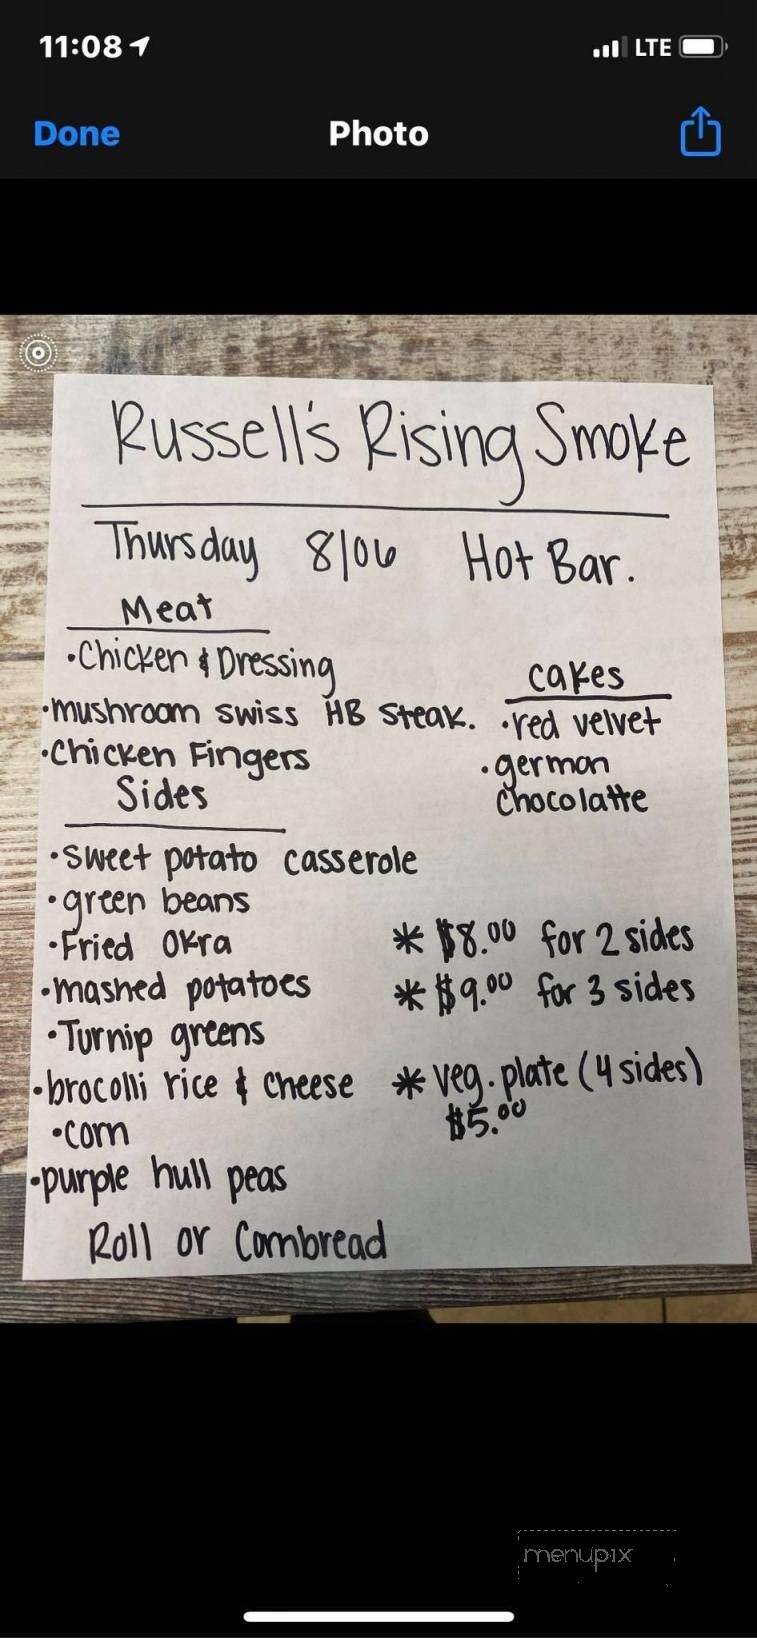 11:08
LTE
Done
Photo
Russell's Rising Smoke
Thursday 8/06 Hot Bar.
Meat
•Chicken & Dressing
•mushroom swiss HB steak.
•Chicken Fingers
cakes
•red velvet
•german
chocolatte
Sides
•sweet potato casserole
•green beans
•Fried Okra
•mashed potatoes
•Turnip greens
•brocolli rice & cheese
•corn
•purple hull peas
Roll or Cornbread
* $8.00 for 2 sides
* $9.00 for 3 sides
* veg. plate (4 sides)
$5.00
menupix